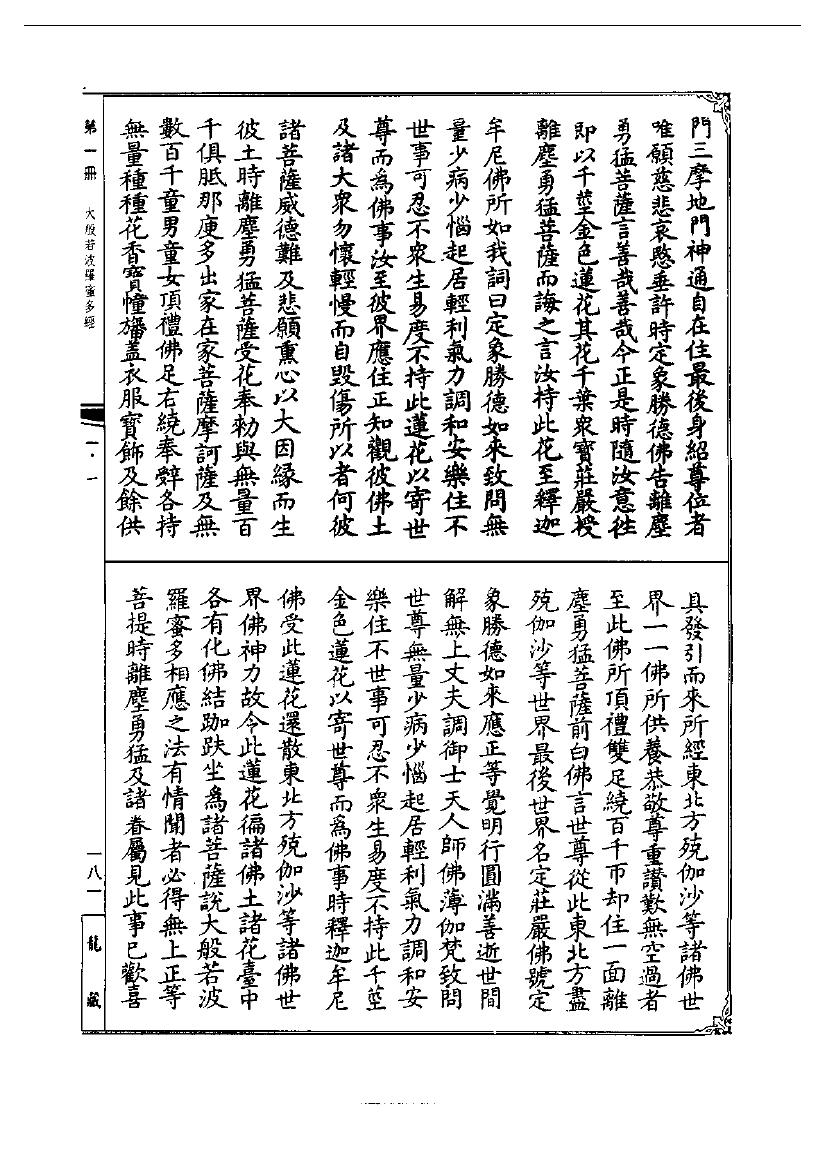 門三摩地門神通自在住最後身紹尊位者
唯願慈悲哀愍垂許時定象勝德佛告離塵
勇猛菩薩言善哉善哉今正是時隨汝意往
即以千莖金色蓮花其花千葉衆寶莊嚴授
離塵勇猛菩薩而誨之言汝持此花至釋迦
牟尼佛所如我詞曰定象勝德如來致問無
量少病少惱起居輕利氣力調和安樂住不
世事可忍不衆生易度不持此蓮花以寄世
尊而爲佛事汝至彼界應住正知觀彼佛土
及諸大衆勿懷輕慢而自毀傷所以者何彼
諸菩薩威德難及悲願熏心以大因緣而生
彼土時離塵勇猛菩薩受花奉勑與無量百
千俱胝那庾多出家在家菩薩摩訶薩及無
數百千童男童女頂禮佛足右繞奉辤各持
無量種種花香寶幢旛蓋衣服寶飾及餘供
具發引而來所經東北方殑伽沙等諸佛世
界一一佛所供養恭敬尊重讃歎無空過者
至此佛所頂禮雙足繞百千帀却住一面離
塵勇猛菩薩前白佛言世尊從此東北方盡
殑伽沙等世界最後世界名定莊嚴佛號定
象勝德如來應正等覺明行圓滿善逝世間
解無上丈夫調御士天人師佛薄伽梵致問
世尊無量少病少惱起居輕利氣力調和安
樂住不世事可忍不衆生易度不持此千莖
金色蓮花以寄世尊而爲佛事時釋迦牟尼
佛受此蓮花還散東北方殑伽沙等諸佛世
界佛神力故令此蓮花徧諸佛土諸花臺中
各有化佛結跏趺坐爲諸菩薩說大般若波
羅蜜多相應之法有情聞者必得無上正等
菩提時離塵勇猛及諸眷屬見此事已歡喜
第一册 大般若波羅蜜多經
一·一
一八一
龍藏